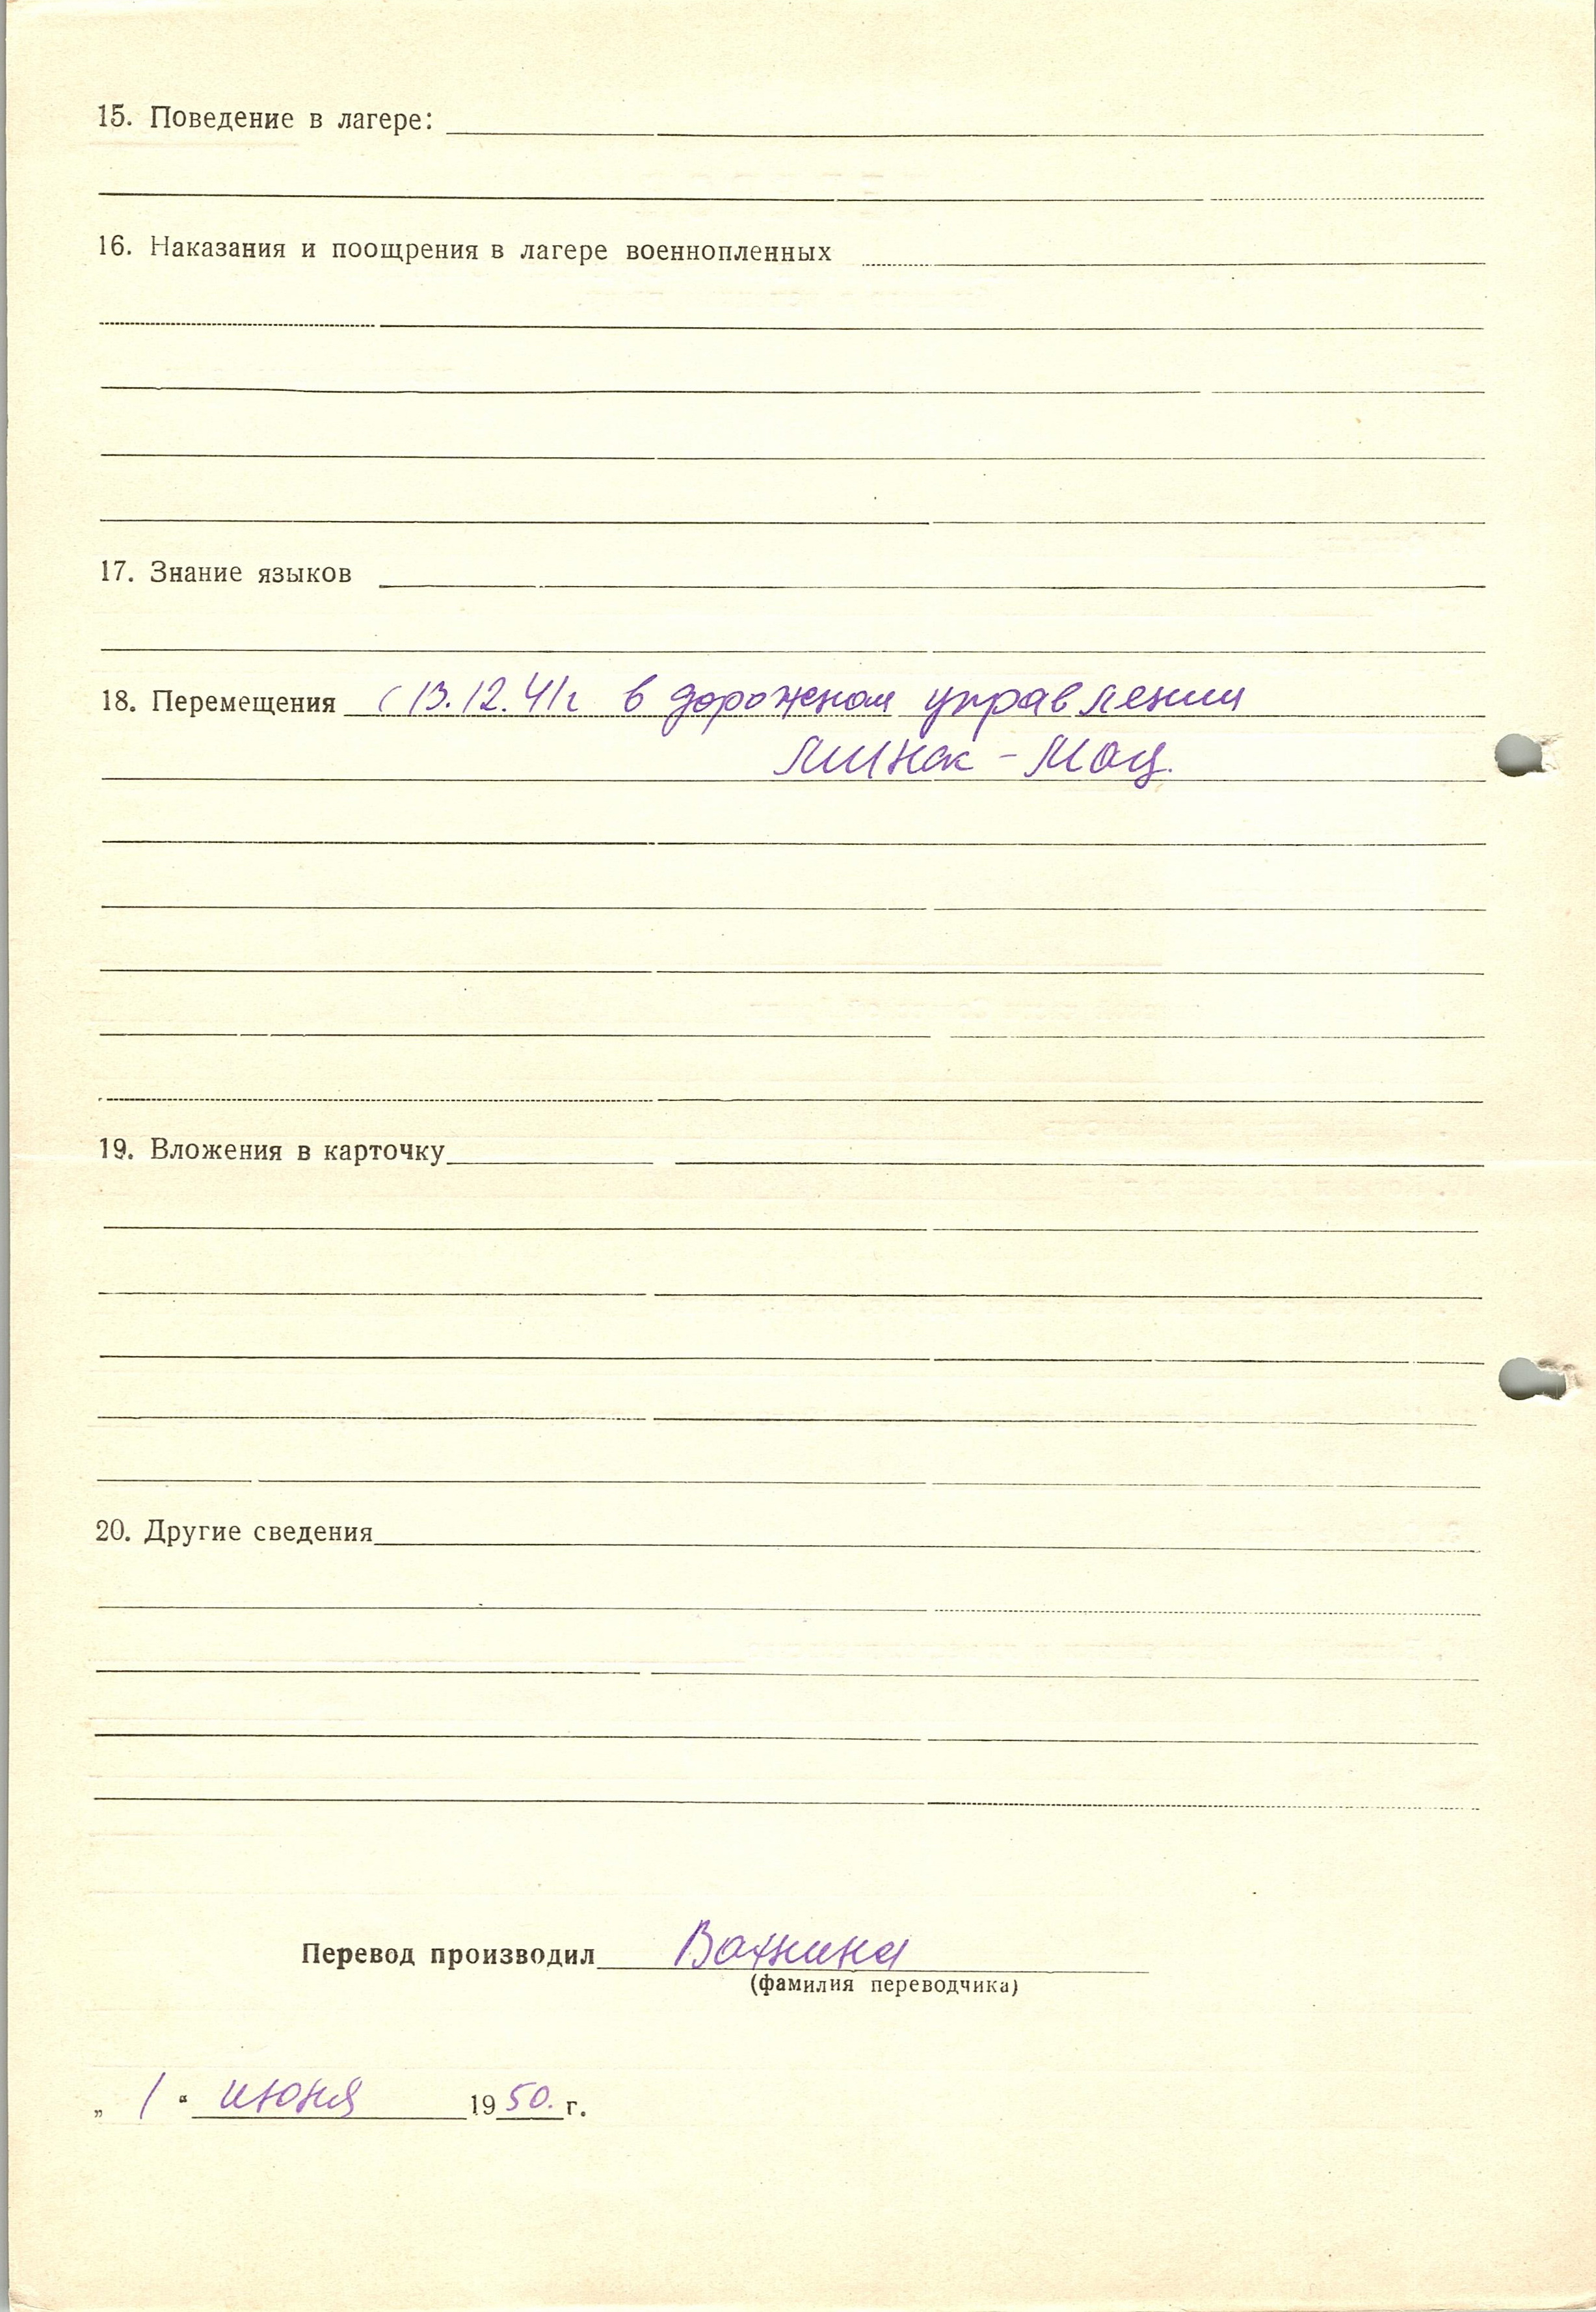 15. Поведение в лагере:
16. Наказания и поощрения в лагере военнопленных
17. Знание языков
18. Перемещения с 13.12.41г в дорожном управлении
Минск - Моц.
19. Вложения в карточку
20. Другие сведения
Перевод производил
(фамилия переводчика)
„ 1 “ июня 1950. г.